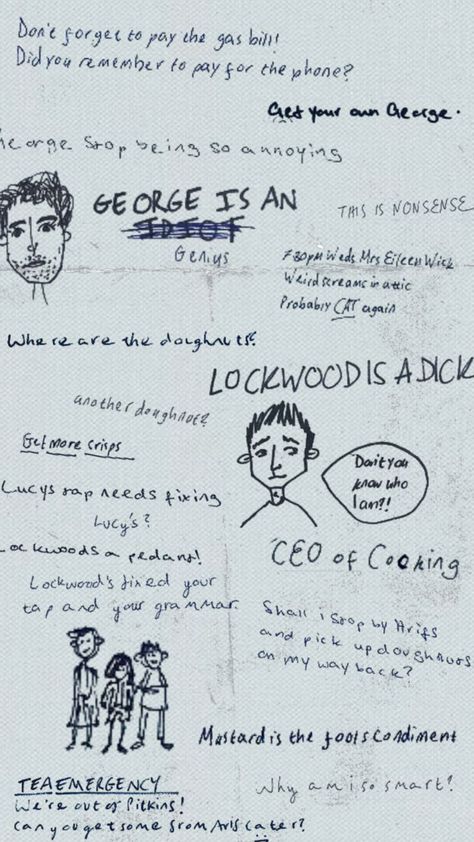 Don't forget to pay the gas bill!
Did you remember to pay for the phone?
Get your own George.
George stop being so annoying
GEORGE IS AN
IDIOT
Genius
THIS IS NONSENSE
7:30pm Weds Mrs Eileen Wick
Weird screams in attic
Probably CAT again
Where are the doughnuts?
LOCKWOOD IS A DICK
another doughnut?
Get more crisps
Don't you
know who
I am?!
Lucys tap needs fixing
Lucy's?
Lockwoods a pedant!
CEO of Cooking
Lockwood's fixed your
tap and your grammar
Shall i stop by Arifs
and pick up doughnuts
on my way back?
Mustard is the fools condiment
TEA EMERGENCY
We're out of Pitkins!
Can you get some from Arifs later?
Why am i so smart?